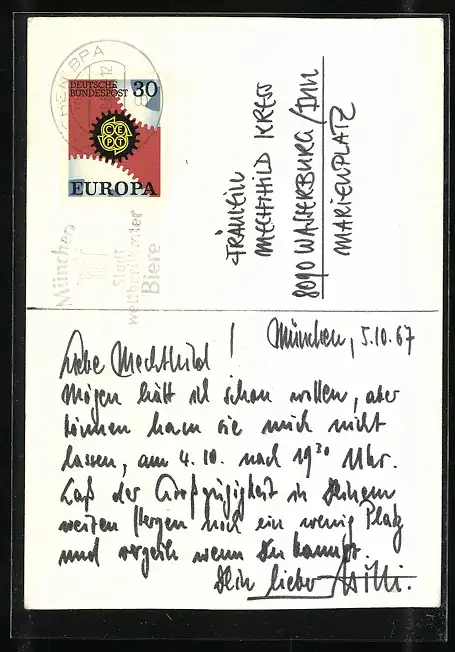 DEUTSCHE
BUNDESPOST 30
CEPT
EUROPA
München
Stadt
weltberühmter
Biere
FRÄULEIN
MECHTHILD KRESS
8090 WASSERBURG/INN
MARIENPLATZ
München, 5.10.67
Liebe Mechthild!
Mögen hätt ich schon wollen, aber
können ham sie mich nicht
lassen, am 4.10. nach 19³⁰ Uhr.
Laß der Großzügigkeit in Deinem
weiten Herzen noch ein wenig Platz
und verzeih wenn Du kannst.
Dein lieber Willi.